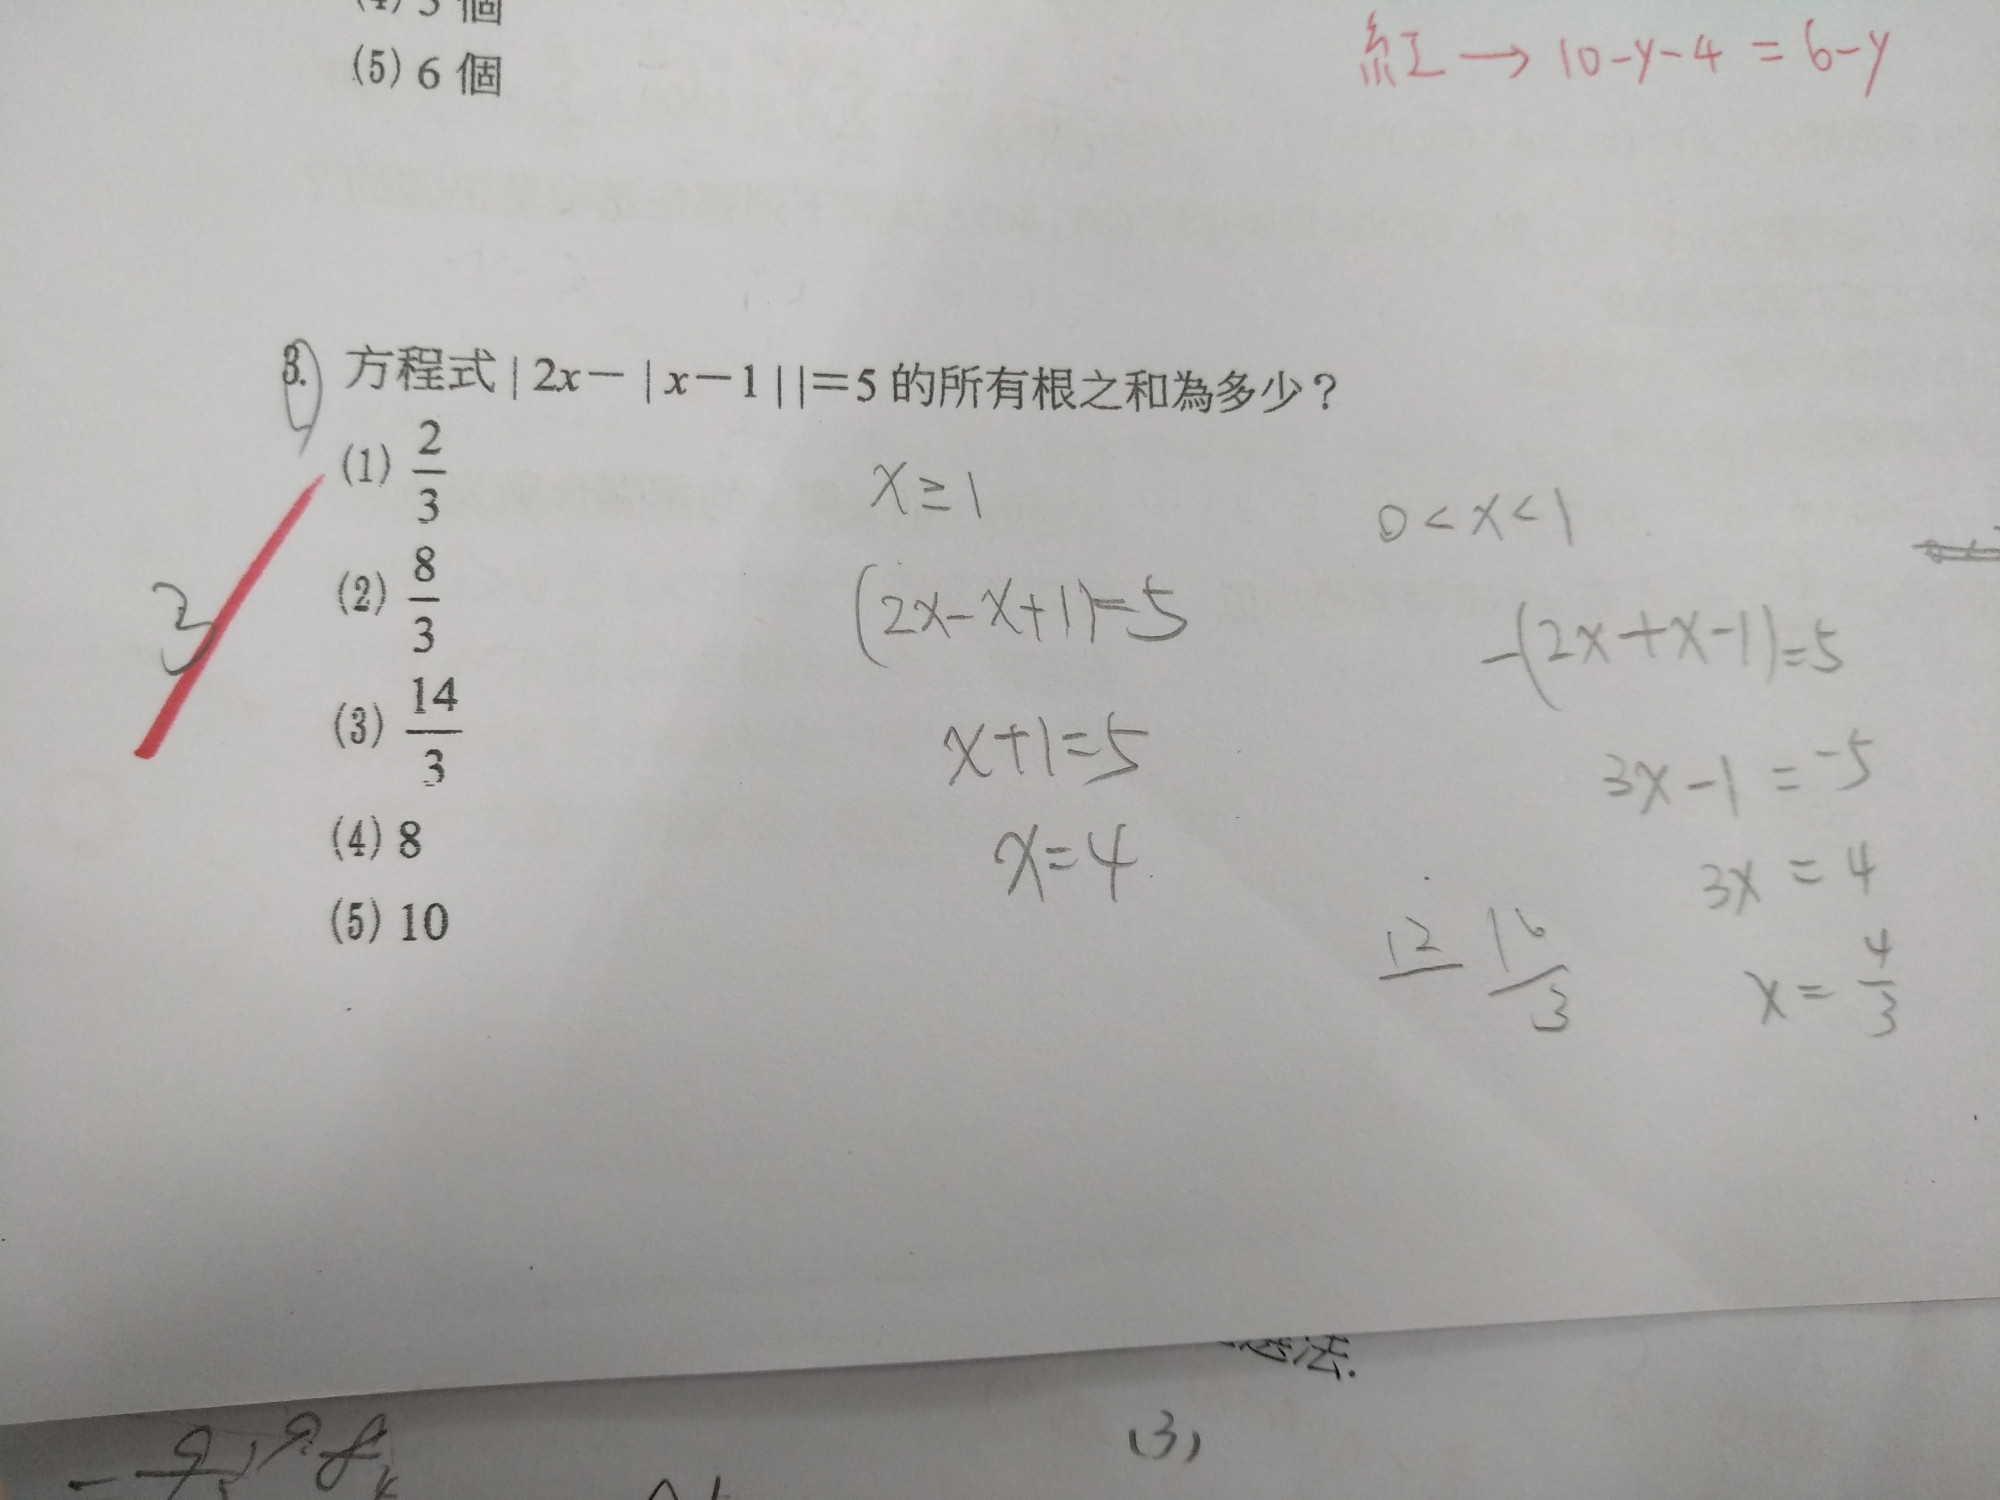 (5) 6 個
紅 → 10-y-4 = 6-y
3. 方程式 | 2x－ | x－1 | |＝5 的所有根之和為多少？
(1) 2/3
(2) 8/3
(3) 14/3
(4) 8
(5) 10
3
x ≥ 1
(2x-x+1)=5
x+1=5
x=4
0 < x < 1
-(2x+x-1)=5
3x-1 = -5
3x = 4
x = 4/3
12
16/3
(3)